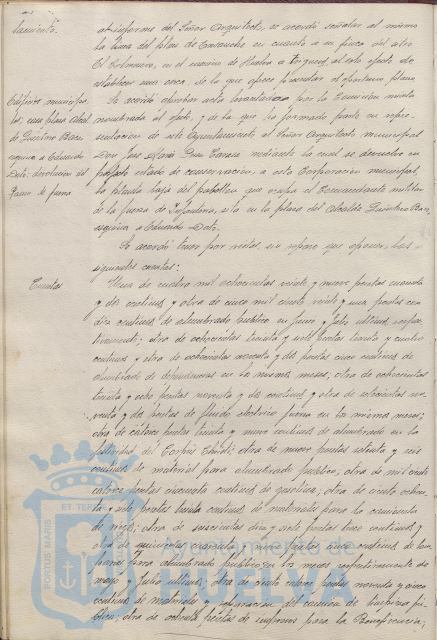 lacimiento.
al informe del Señor Arquitecto, se acordó señalar al mismo
la línea del plan de Ensanche en cuanto a su finca del sitio
El Polvorín, en el camino de Huelva a Peigneo, al solo efecto de
establecer una cerca, de la que ofrece presentar el oportuno plano.
Edificios municipa-
les; casa plaza Alcal-
de Quintero Baez
esquina a Eduardo
Dato; devolución del
Ramo de guerra
Se acordó aprobar acta levantada por la Comisión mixta
nombrada al efecto, y de la que ha formado parte en repre-
sentación de este Ayuntamiento el Señor Arquitecto municipal
Don José María Pérez Carasa mediante la cual se devuelve en
perfecto estado de conservación, a esta Corporación municipal,
la planta baja del pabellón que ocupa el Comandante militar
de la fuerza de Infantería, sita en la plaza del Alcalde Quintero Baez
esquina a Eduardo Dato.
Se acordó tener por vistas, sin reparo que oponer, las
siguientes cuentas:
Cuentas
Una de cuatro mil ochocientas veinte y nueve pesetas cuarenta
y dos céntimos y otra de cinco mil ciento veinte y una pesetas con
diez céntimos de alumbrado público en Junio y Julio últimos respec-
tivamente; otra de ochocientas treinta y siete pesetas treinta y cuatro
céntimos y otra de ochocientas noventa y dos pesetas cinco céntimos de
alumbrado de dependencias en los mismos meses; otra de ochocientas
treinta y ocho pesetas noventa y dos céntimos y otra de setecientas no-
venta y dos pesetas de fluido eléctrico fuerza en los mismos meses;
otra de catorce pesetas treinta y nueve céntimos de alumbrado en la
festividad del Corpus Christi; otra de nueve pesetas setenta y seis
céntimos de material para alumbrado público; otra de mil ciento
catorce pesetas cincuenta céntimos de gasolina; otra de ciento ochen-
ta y siete pesetas treinta céntimos de materiales para la camioneta
de riego; otra de seiscientas diez y siete pesetas once céntimos y
otra de quinientas cuarenta y nueve pesetas céntimos de lám-
paras para alumbrado público, en los meses respectivamente de
mayo y Julio últimos; otra de ciento catorce pesetas noventa y cinco
céntimos de materiales y reparación del camión de limpieza pú-
blica; otra de ochenta pesetas de impresos para la Beneficencia;
PORTUS MARIS ET TER
Ayuntamiento de
HUELVA